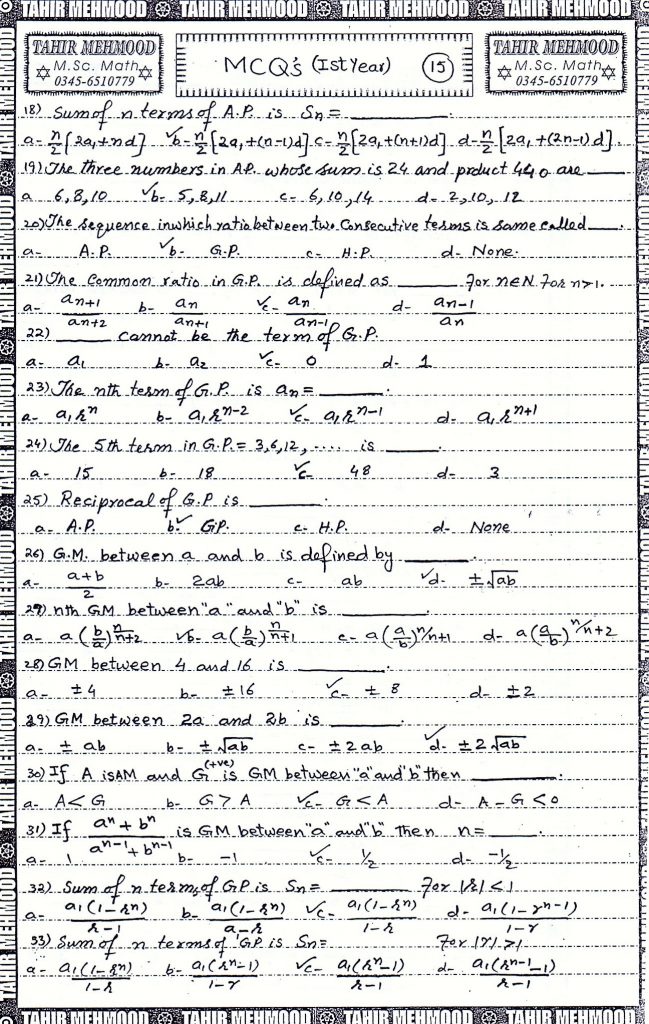 TAHIR MEHMOOD TAHIR MEHMOOD TAHIR MEHMOOD TAHIR MEHMOOD
TAHIR MEHMOOD
M.Sc. Math
0345-6510779
MCQ's (Ist Year) 15
TAHIR MEHMOOD
M.Sc. Math
0345-6510779
18) Sum of n terms of A.P. is Sn = ______
a- n/2 [2a₁+nd] ✓b- n/2 [2a₁+(n-1)d] c- n/2 [2a₁+(n+1)d] d- n/2 [2a₁+(2n-1)d].
19) The three numbers in A.P. whose sum is 24 and product 440 are ______
a 6,8,10 ✓b- 5,8,11 c- 6,10,14 d- 2,10,12
20) The sequence in which ratio between two Consecutive terms is same called ______.
a- A.P. ✓b- G.P. c- H.P. d- None.
21) The Common ratio in G.P. is defined as ______ for n∈N for n>1.
a- an+1/an+2 b- an/an+1 ✓c- an/an-1 d- an-1/an
22) ______ cannot be the term of G.P.
a- a₁ b- a₂ ✓c- 0 d- 1
23) The nth term of G.P. is an = ______.
a- a₁rⁿ b- a₁rⁿ⁻² ✓c- a₁rⁿ⁻¹ d- a₁rⁿ⁺¹
24) The 5th term in G.P. = 3,6,12, .... is ______.
a- 15 b- 18 ✓c- 48 d- 3
25) Reciprocal of G.P is ______.
a- A.P. b-✓ GP. c- H.P. d- None
26) G.M. between a and b is defined by ______.
a- a+b/2 b- 2ab c- ab ✓d- ±√ab
27) nth GM between "a" and "b" is ______.
a- a(b/a)^n/n+2 ✓b- a(b/a)^n/n+1 c- a(a/b)^n/n+1 d- a(a/b)^n/n+2
28) GM between 4 and 16 is ______.
a- ±4 b- ±16 ✓c- ±8 d- ±2
29) GM between 2a and 2b is ______.
a- ±ab b- ±√ab c- ±2ab ✓d- ±2√ab
30) If A is AM and G(+ve) is GM between "a" and "b" then ______.
a- A<G b- G>A ✓c- G<A d- A-G<0
31) If aⁿ+bⁿ/aⁿ⁻¹+bⁿ⁻¹ is GM between "a" and "b" then n= ______.
a- 1 b- -1 ✓c- ½ d- -½
32) Sum of n terms of GP is Sn = ______ for |r|<1
a- a₁(1-rⁿ)/r-1 b- a₁(1-rⁿ)/a-r ✓c- a₁(1-rⁿ)/1-r d- a₁(1-rⁿ⁻¹)/1-r
33) Sum of n terms of GP is Sn= For |r|>1
a- a₁(1-rⁿ)/1-r b- a₁(rⁿ-1)/1-r ✓c- a₁(rⁿ-1)/r-1 d- a₁(rⁿ⁻¹-1)/r-1
TAHIR MEHMOOD TAHIR MEHMOOD TAHIR MEHMOOD TAHIR MEHMOOD